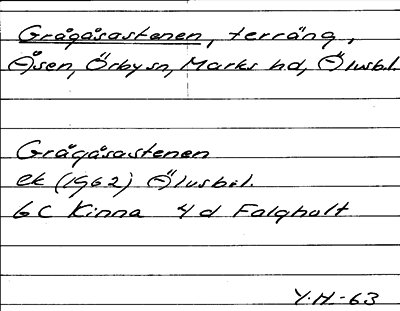 Grågåsastenen, terräng,
Åsen, Örby sn, Marks hd, Älvsbl.
Grågåsastenen
ek (1962) Älvsbl.
6C Kinna 4d Falghult
Y.H.-63